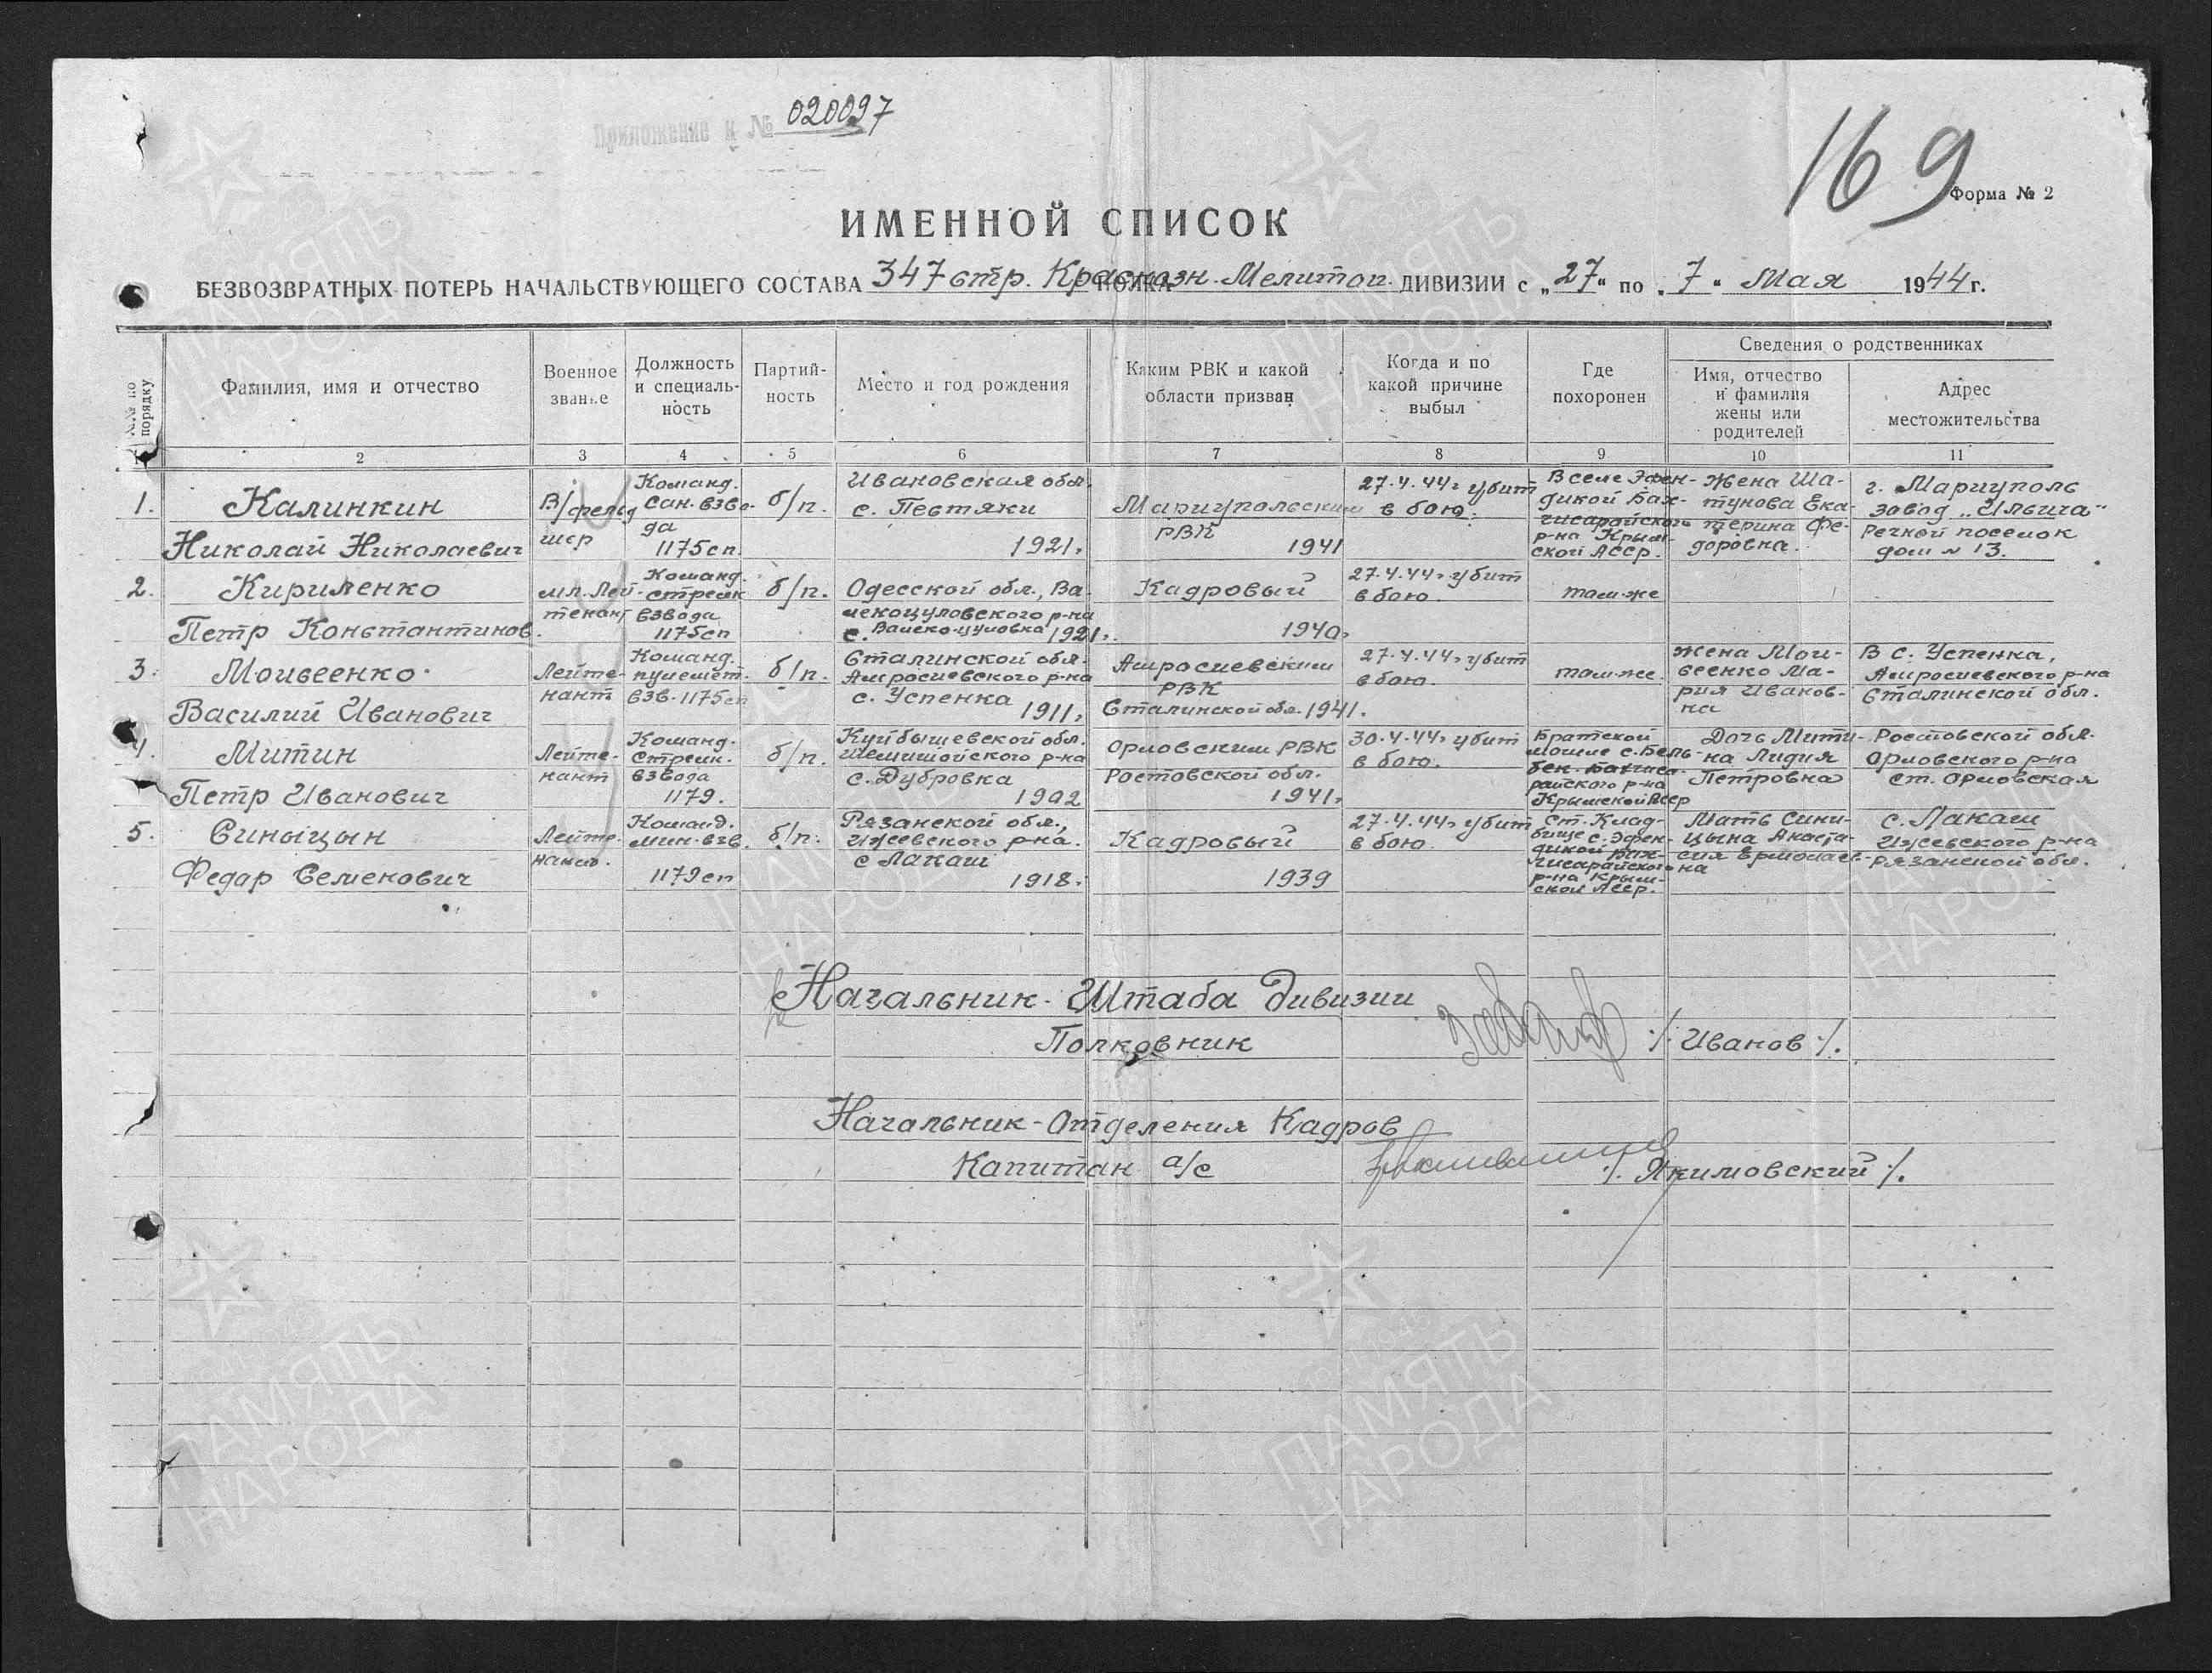 Приложение к № 020097
169
Форма № 2
ИМЕННОЙ СПИСОК
БЕЗВОЗВРАТНЫХ ПОТЕРЬ НАЧАЛЬСТВУЮЩЕГО СОСТАВА 347 стр. Краснозн. Мелитоп. ДИВИЗИИ с „27“ по „7“ Мая 1944 г.
№№ по порядку
Фамилия, имя и отчество
Военное званье
Должность и специальность
Партийность
Место и год рождения
Каким РВК и какой области призван
Когда и по какой причине выбыл
Где похоронен
Сведения о родственниках
Имя, отчество и фамилия жены или родителей
Адрес местожительства
1 2 3 4 5 6 7 8 9 10 11
1. Калинкин Николай Николаевич
В/фельдшер
Команд. сан. взвода 1175 сп.
б/п.
Ивановская обл. с. Пестяки 1921г
Мариупольским РВК 1941
27.4.44г убит в бою.
В селе Эфендикой Бахчисарайского р-на Крымской АССР.
Жена Шатунова Екатерина Федоровна.
г. Мариуполь завод „Ильича“ Речной поселок дом № 13.
2. Кириленко Петр Константинов.
мл. Лейтенант
Команд. стрелк взвода 1175 сп
б/п.
Одесской обл., р-на 1921г.
Кадровый 1940г
27.4.44г убит в бою.
там-же
3. Моисеенко Василий Иванович
Лейтенант
Команд. пулемет. взв. 1175 сп
б/п.
Сталинской обл. Амросиевского р-на с. Успенка 1911г
Амросиевским РВК Сталинской обл. 1941.
27.4.44г убит в бою.
там-же.
Жена Моисеенко Мария Ивановна
В с. Успенка, Амросиевского р-на Сталинской обл.
4. Митин Петр Иванович
Лейтенант
Команд. Стрелк. взвода 1179.
б/п.
Куйбышевской обл. Шемышойского р-на с. Дубровка 1902
Орловским РВК Ростовской обл. 1941г
30.4.44г убит в бою.
Братской могиле с. Бельбек Бахчисарайского р-на Крымской АССР
Дочь Митина Лидия Петровна
Ростовской обл. Орловского р-на ст. Орловская
5. Синыцын Федар Семенович
Лейтенант.
Команд. мин. взв. 1179 сп
б/п.
Рязанской обл., Ижевского р-на. с Лакаш 1918г
Кадровый 1939
27.4.44г убит в бою.
Ст. Кладбище с. Эфендикой Бахчисарайского р-на Крымской АССР.
Мать Синицына Анастасия Ермолаевна
с. Лакаш Ижевского р-на Рязанской обл.
Начальник Штаба Дивизии
Полковник /Иванов/.
Начальник-Отделения Кадров
Капитан а/с /Якимовский/.
ПАМЯТЬ НАРОДА
ПАМЯТЬ НАРОДА
ПАМЯТЬ НАРОДА
ПАМЯТЬ НАРОДА
ПАМЯТЬ НАРОДА
ПАМЯТЬ НАРОДА